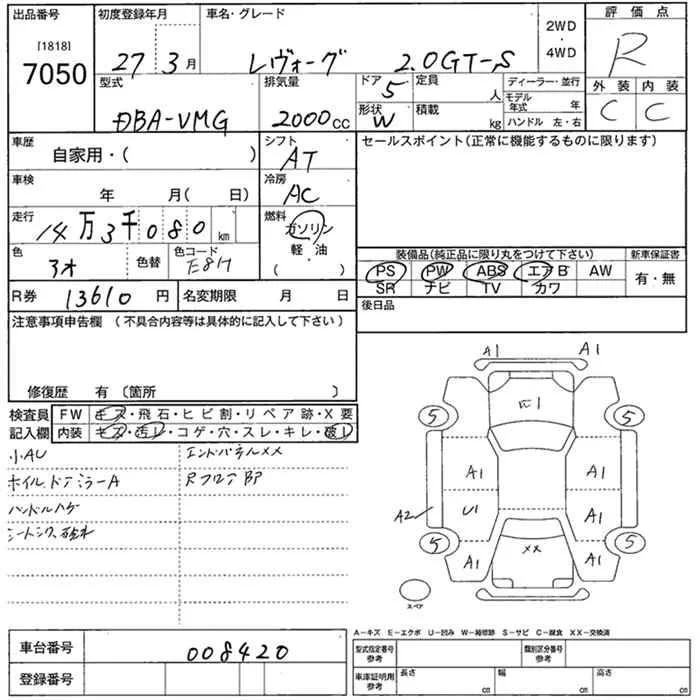 出品番号 初度登録年月 車名・グレード 2WD・4WD 評価点
[1818]
7050 27 3月 レヴォーグ 2.0GT-S R
型式 排気量 ドア 5 定員 人 ディーラー・並行 外装 内装
DBA-VMG 2000cc 形状 W 積載 kg モデル年式 年 C C
ハンドル 左・右
車歴 自家用・( ) シフト AT セールスポイント(正常に機能するものに限ります)
車検 年 月( 日) 冷房 AC
走行 14万3千080 km 燃料 ガソリン・軽・油 ( )
色 アオ 色替 色コード E8H
装備品(純正品に限り丸をつけて下さい) 新車保証書
PS PW ABS エアB AW 有・無
SR ナビ TV カワ
R券 13610円 名変期限 月 日 後日品
注意事項申告欄 (不具合内容等は具体的に記入して下さい)
修復歴 有 〔箇所 〕
検査員 FW キズ・飛石・ヒビ割・リペア跡・X要
記入欄 内装 キズ・汚レ・コゲ・穴・スレ・キレ・破レ
小AU エンドパネルXX
ホイル.ドアミラーA Rフロア BP
ハンドルハゲ
A1 A1
5 1 5
A1 A1
A2 U1 A1
5 A1 XX A1 5
スペア
A-キズ E-エクボ U-凹み W-補修跡 S-サビ C-腐食 XX-交換済
車台番号 008420 型式指定番号 参考 類別区分番号 参考
登録番号 車庫証明用 参考 長さ cm 幅 cm 高さ cm